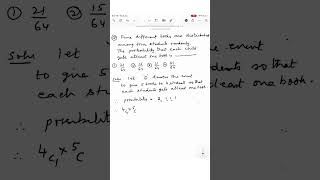 ② Five different books are distributed
among four students randomly.
The probability that each child
gets atleast one book is
① 21/64 ② 15/64
Soln Let denotes the event
to give 5 books to 4 students so that
each student gets atleast one book.
∴ possibilities = 2, 1, 1, 1
∴ 4C1 × 5C